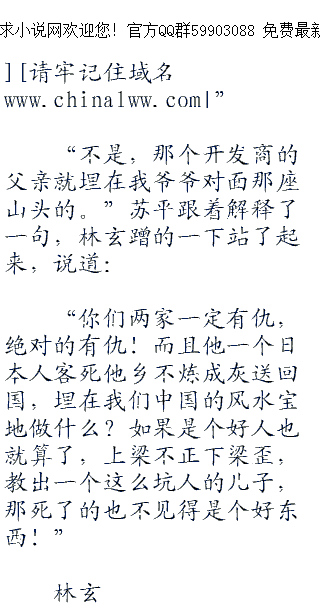 求小说网欢迎您! 官方QQ群59903088 免费最新
][请牢记住域名
www.china1ww.com|”
“不是，那个开发商的
父亲就埋在我爷爷对面那座
山头的。”苏平跟着解释了
一句，林玄蹭的一下站了起
来，说道：
“你们两家一定有仇，
绝对的有仇！而且他一个日
本人客死他乡不炼成灰送回
国，埋在我们中国的风水宝
地做什么？如果是个好人也
就算了，上梁不正下梁歪，
教出一个这么坑人的儿子，
那死了的也不见得是个好东
西！”
林玄